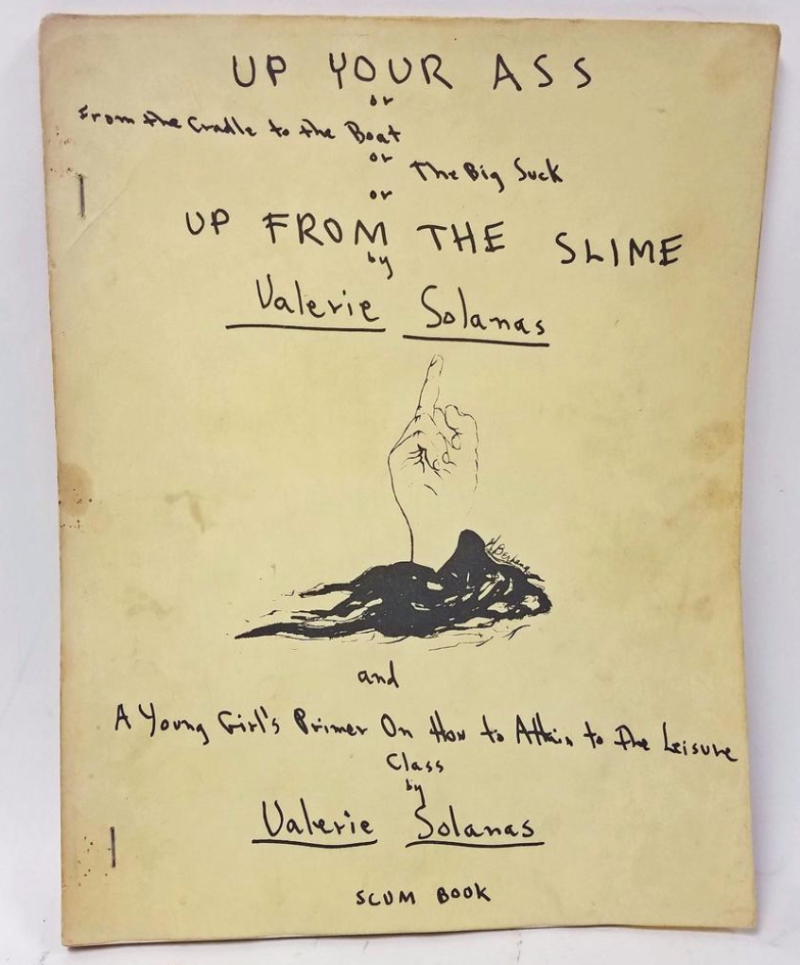 UP YOUR ASS
or
From the Cradle to the Boat
or
The Big Suck
or
UP FROM THE SLIME
by
Valerie Solanas
and
A Young Girl's Primer On How to Attain to the Leisure
Class
by
Valerie Solanas
SCUM BOOK